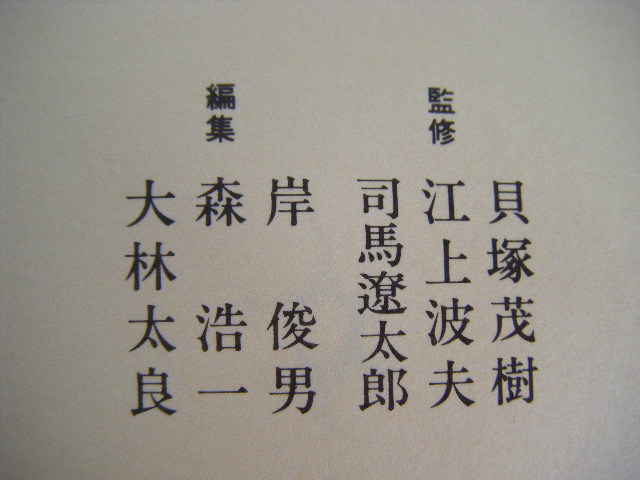 貝塚茂樹
監修
江上波夫
司馬遼太郎
岸俊男
編集
森浩一
大林太良